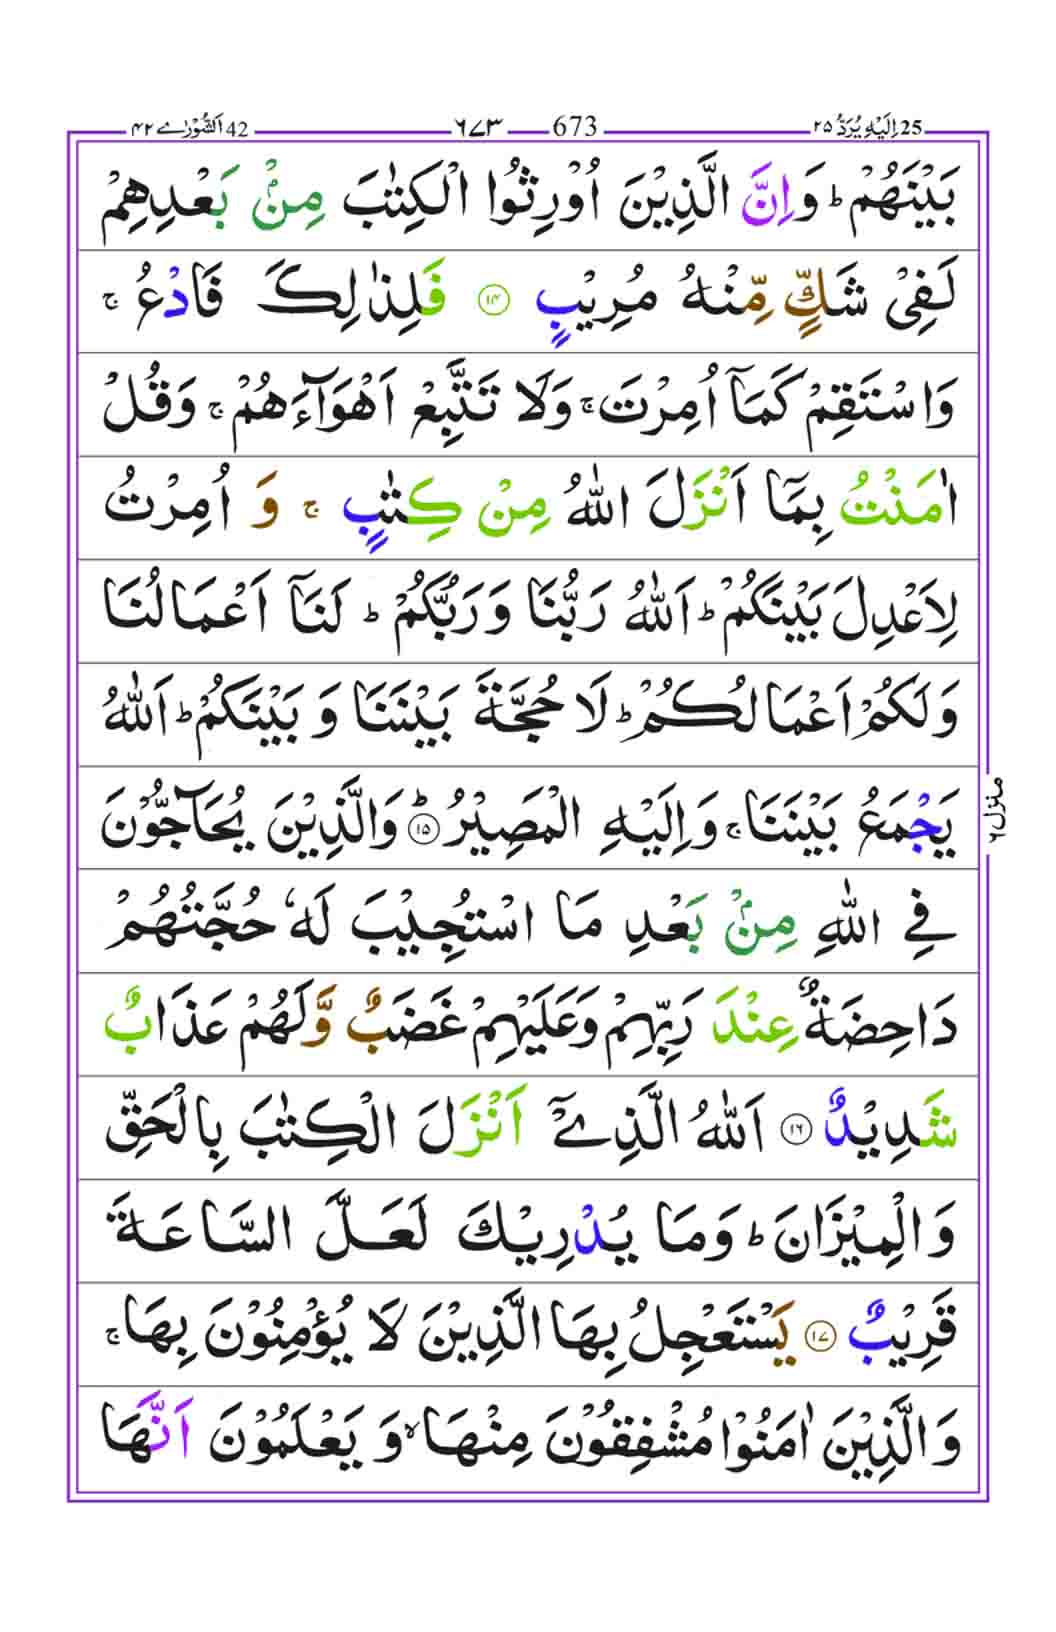 25 اِلَيْهِ يُرَدُّ ٢٥
673 ٦٧٣
42 اَلشُّوْرٰے ٤٢
بَيْنَهُمْ ؕ وَاِنَّ الَّذِيْنَ اُوْرِثُوا الْكِتٰبَ مِنْۢ بَعْدِهِمْ
لَفِىْ شَكٍّ مِّنْهُ مُرِيْبٍ ⁧۝١٤ فَلِذٰلِكَ فَادْعُ ۚ
وَاسْتَقِمْ كَمَاۤ اُمِرْتَ ۚ وَلَا تَتَّبِعْ اَهْوَآءَهُمْ ۚ وَقُلْ
اٰمَنْتُ بِمَاۤ اَنْزَلَ اللّٰهُ مِنْ كِتٰبٍ ۚ وَ اُمِرْتُ
لِاَعْدِلَ بَيْنَكُمْ ؕ اَللّٰهُ رَبُّنَا وَ رَبُّكُمْ ؕ لَنَاۤ اَعْمَالُنَا
وَ لَكُمْ اَعْمَالُكُمْ ؕ لَا حُجَّةَ بَيْنَنَا وَ بَيْنَكُمْ ؕ اَللّٰهُ
يَجْمَعُ بَيْنَنَا ۚ وَاِلَيْهِ الْمَصِيْرُ ؕ ۝١٥ وَالَّذِيْنَ يُحَآجُّوْنَ
فِے اللّٰهِ مِنْۢ بَعْدِ مَا اسْتُجِيْبَ لَهٗ حُجَّتُهُمْ
دَاحِضَةٌ عِنْدَ رَبِّهِمْ وَعَلَيْهِمْ غَضَبٌ وَّلَهُمْ عَذَابٌ
شَدِيْدٌ ۝١٦ اَللّٰهُ الَّذِےْۤ اَنْزَلَ الْكِتٰبَ بِالْحَقِّ
وَ الْمِيْزَانَ ؕ وَمَا يُدْرِيْكَ لَعَلَّ السَّاعَةَ
قَرِيْبٌ ۝١٧ يَسْتَعْجِلُ بِهَا الَّذِيْنَ لَا يُؤْمِنُوْنَ بِهَا ۚ
وَ الَّذِيْنَ اٰمَنُوْا مُشْفِقُوْنَ مِنْهَا ۙ وَ يَعْلَمُوْنَ اَنَّهَا
منزل ٦